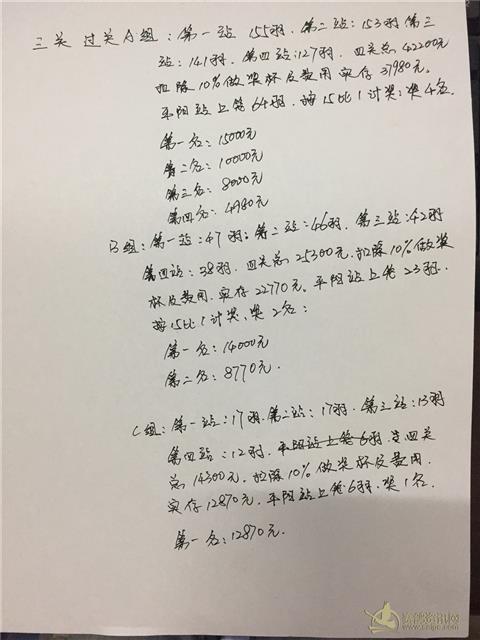 三关过关A组：第一站155羽.第二站：153羽第三
站：141羽.第四站：127羽.四关总42200元
扣除10%做奖杯及费用实存37980元.
平阳站上笼64羽.按15比1计奖：奖4名.
第一名：15000元
第二名：10000元
第三名：8000元
第四名：4980元
B组：第一站：47羽；第二站：46羽.第三站：42羽
第四站：38羽.四关总25300元.扣除10%做奖
杯及费用.实存22770元.平阳站上笼23羽.
按15比1计奖、奖2名：
第一名：14000元
第二名：8770元.
C组：第一站：17羽.第二站：17羽.第三站：13羽
第四站：12羽.平阳站上笼6羽.四关
总14300元.扣除10%做奖杯及费用.
实存12870元.平阳站上笼6羽.奖1名.
第一名：12870元.